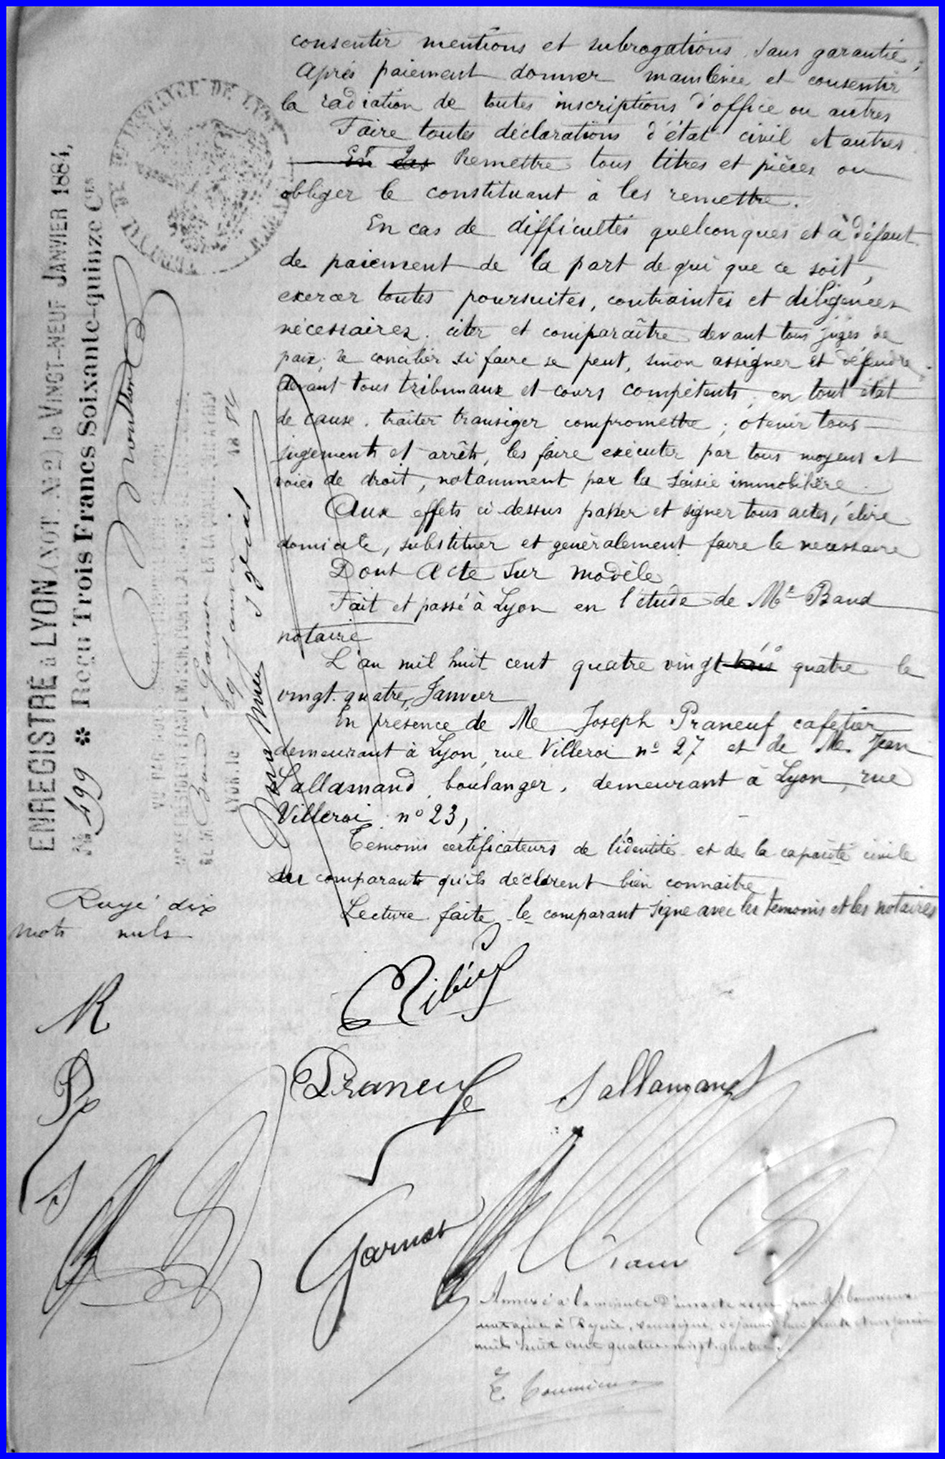 consentir mentions et subrogations sans garantie,
Après paiement donner mainlevée et consentir
la radiation de toutes inscriptions d'office ou autres
Faire toutes déclarations d'état civil et autres
Remettre tous titres et pièces ou
obliger le constituant à les remettre.
En cas de difficultés quelconques et à défaut
de paiement de la part de qui que ce soit,
exercer toutes poursuites, contraintes et diligences
nécessaires, citer et comparaître devant tous juges de
paix, se concilier si faire se peut, sinon assigner et défendre
devant tous tribunaux et cours compétents, en tout état
de cause, traiter transiger compromettre; otenir tous
jugements et arrêts, les faire exécuter par tous moyens et
voies de droit, notamment par la Saisie immobilière
Aux effets ci dessus passer et signer tous actes, élire
domicile, substituer et généralement faire le nécessaire
Dont Acte sur modèle
Fait et passé à Lyon en l'étude de Me Baud
notaire
L'an mil huit cent quatre vingt trois quatre le
vingt quatre Janvier
En présence de Me Joseph Praneuf cafetier
demeurant à Lyon, rue Villeroi no 27 et de Me Jean
Sallamand, boulanger, demeurant à Lyon, rue
Villeroi no 23,
Témoins certificateurs de l'identité et de la capacité civile
des comparants qu'ils déclarent bien connaitre
Lecture faite le comparant signe avec les temoins et les notaires
ENREGISTRÉ à LYON (NOT. No 2) le VINGT-NEUF JANVIER 1884,
No 499 Reçu Trois Francs Soixante-quinze Ces
Rayé dix
mots nuls
R
P
S
Praneuf
Sallamand
Garnot
Annexé à la minute d'un acte reçu par
mil huit cent quatre-vingt-quatre